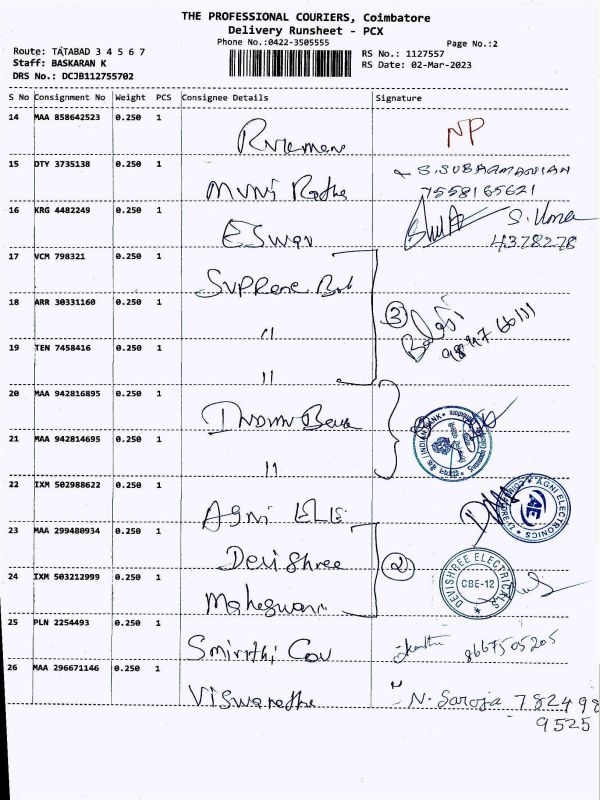 THE PROFESSIONAL COURIERS, Coimbatore
Delivery Runsheet - PCX
Phone No.:0422-3505555
Page No.:2
Route: TATABAD 3 4 5 6 7
Staff: BASKARAN K
DRS No.: DCJB112755702
RS No.: 1127557
RS Date: 02-Mar-2023
S No Consignment No Weight PCS Consignee Details Signature
14 MAA 858642523 0.250 1 NP
15 DTY 3735138 0.250 1 S.SUBRAMANIAN
7558165621
16 KRG 4482249 0.250 1 ESwar S. Uma
4378278
17 VCM 798321 0.250 1 Supreme
18 ARR 30331160 0.250 1 11 3 Balaji
19 TEN 7458416 0.250 1 11
20 MAA 942816895 0.250 1
INDIAN BANK
21 MAA 942814695 0.250 1 11
22 IXM 502988622 0.250 1 Agni
AGNI ELECTRONICS
AE
23 MAA 299480934 0.250 1 Devi Shree 2
DEVISHREE ELECTRICALS
CBE-12
24 IXM 503212999 0.250 1 Maheswari
25 PLN 2254493 0.250 1 8667505205
26 MAA 296671146 0.250 1 N. Saroja 782498
9525